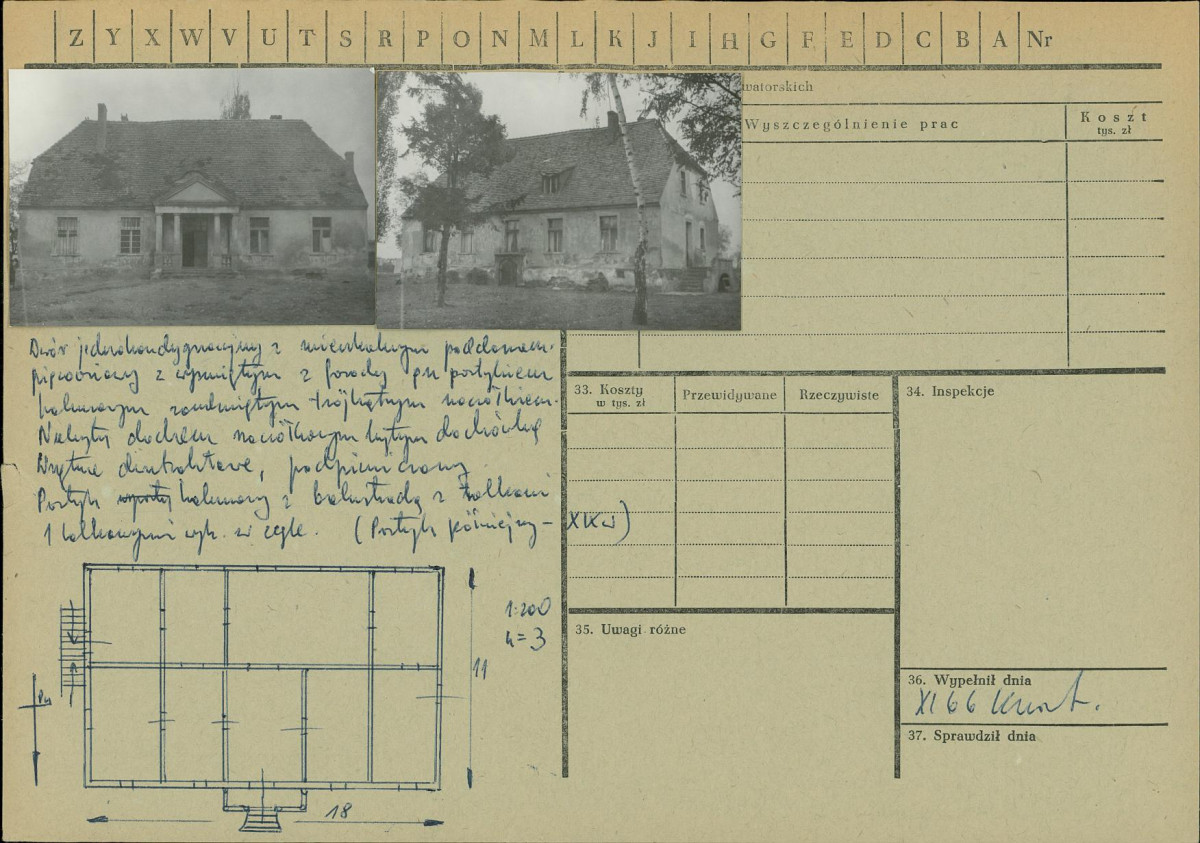 Z Y X W V U T S R P O N M L K J I H G F E D C B A Nr
watorskich
Wyszczególnienie prac
Koszt
tys. zł
Dwór jednokondygnacyjny z mieszkalnym poddaszem.
z wysuniętym z fasady portykiem
kolumnowym zwieńczonym trójkątnym naczółkiem.
Nakryty dachem naczółkowym krytym dachówką
Wnętrze dwutraktowe, podpiwniczony
Portyk kolumnowy z balustradą z tralkami
i wyk. w cegle. (Portyk późniejszy – XIX w)
33. Koszty
w tys. zł
Przewidywane
Rzeczywiste
34. Inspekcje
35. Uwagi różne
36. Wypełnił dnia
XI 66
37. Sprawdził dnia
1:200
h=3
11
Pn
18